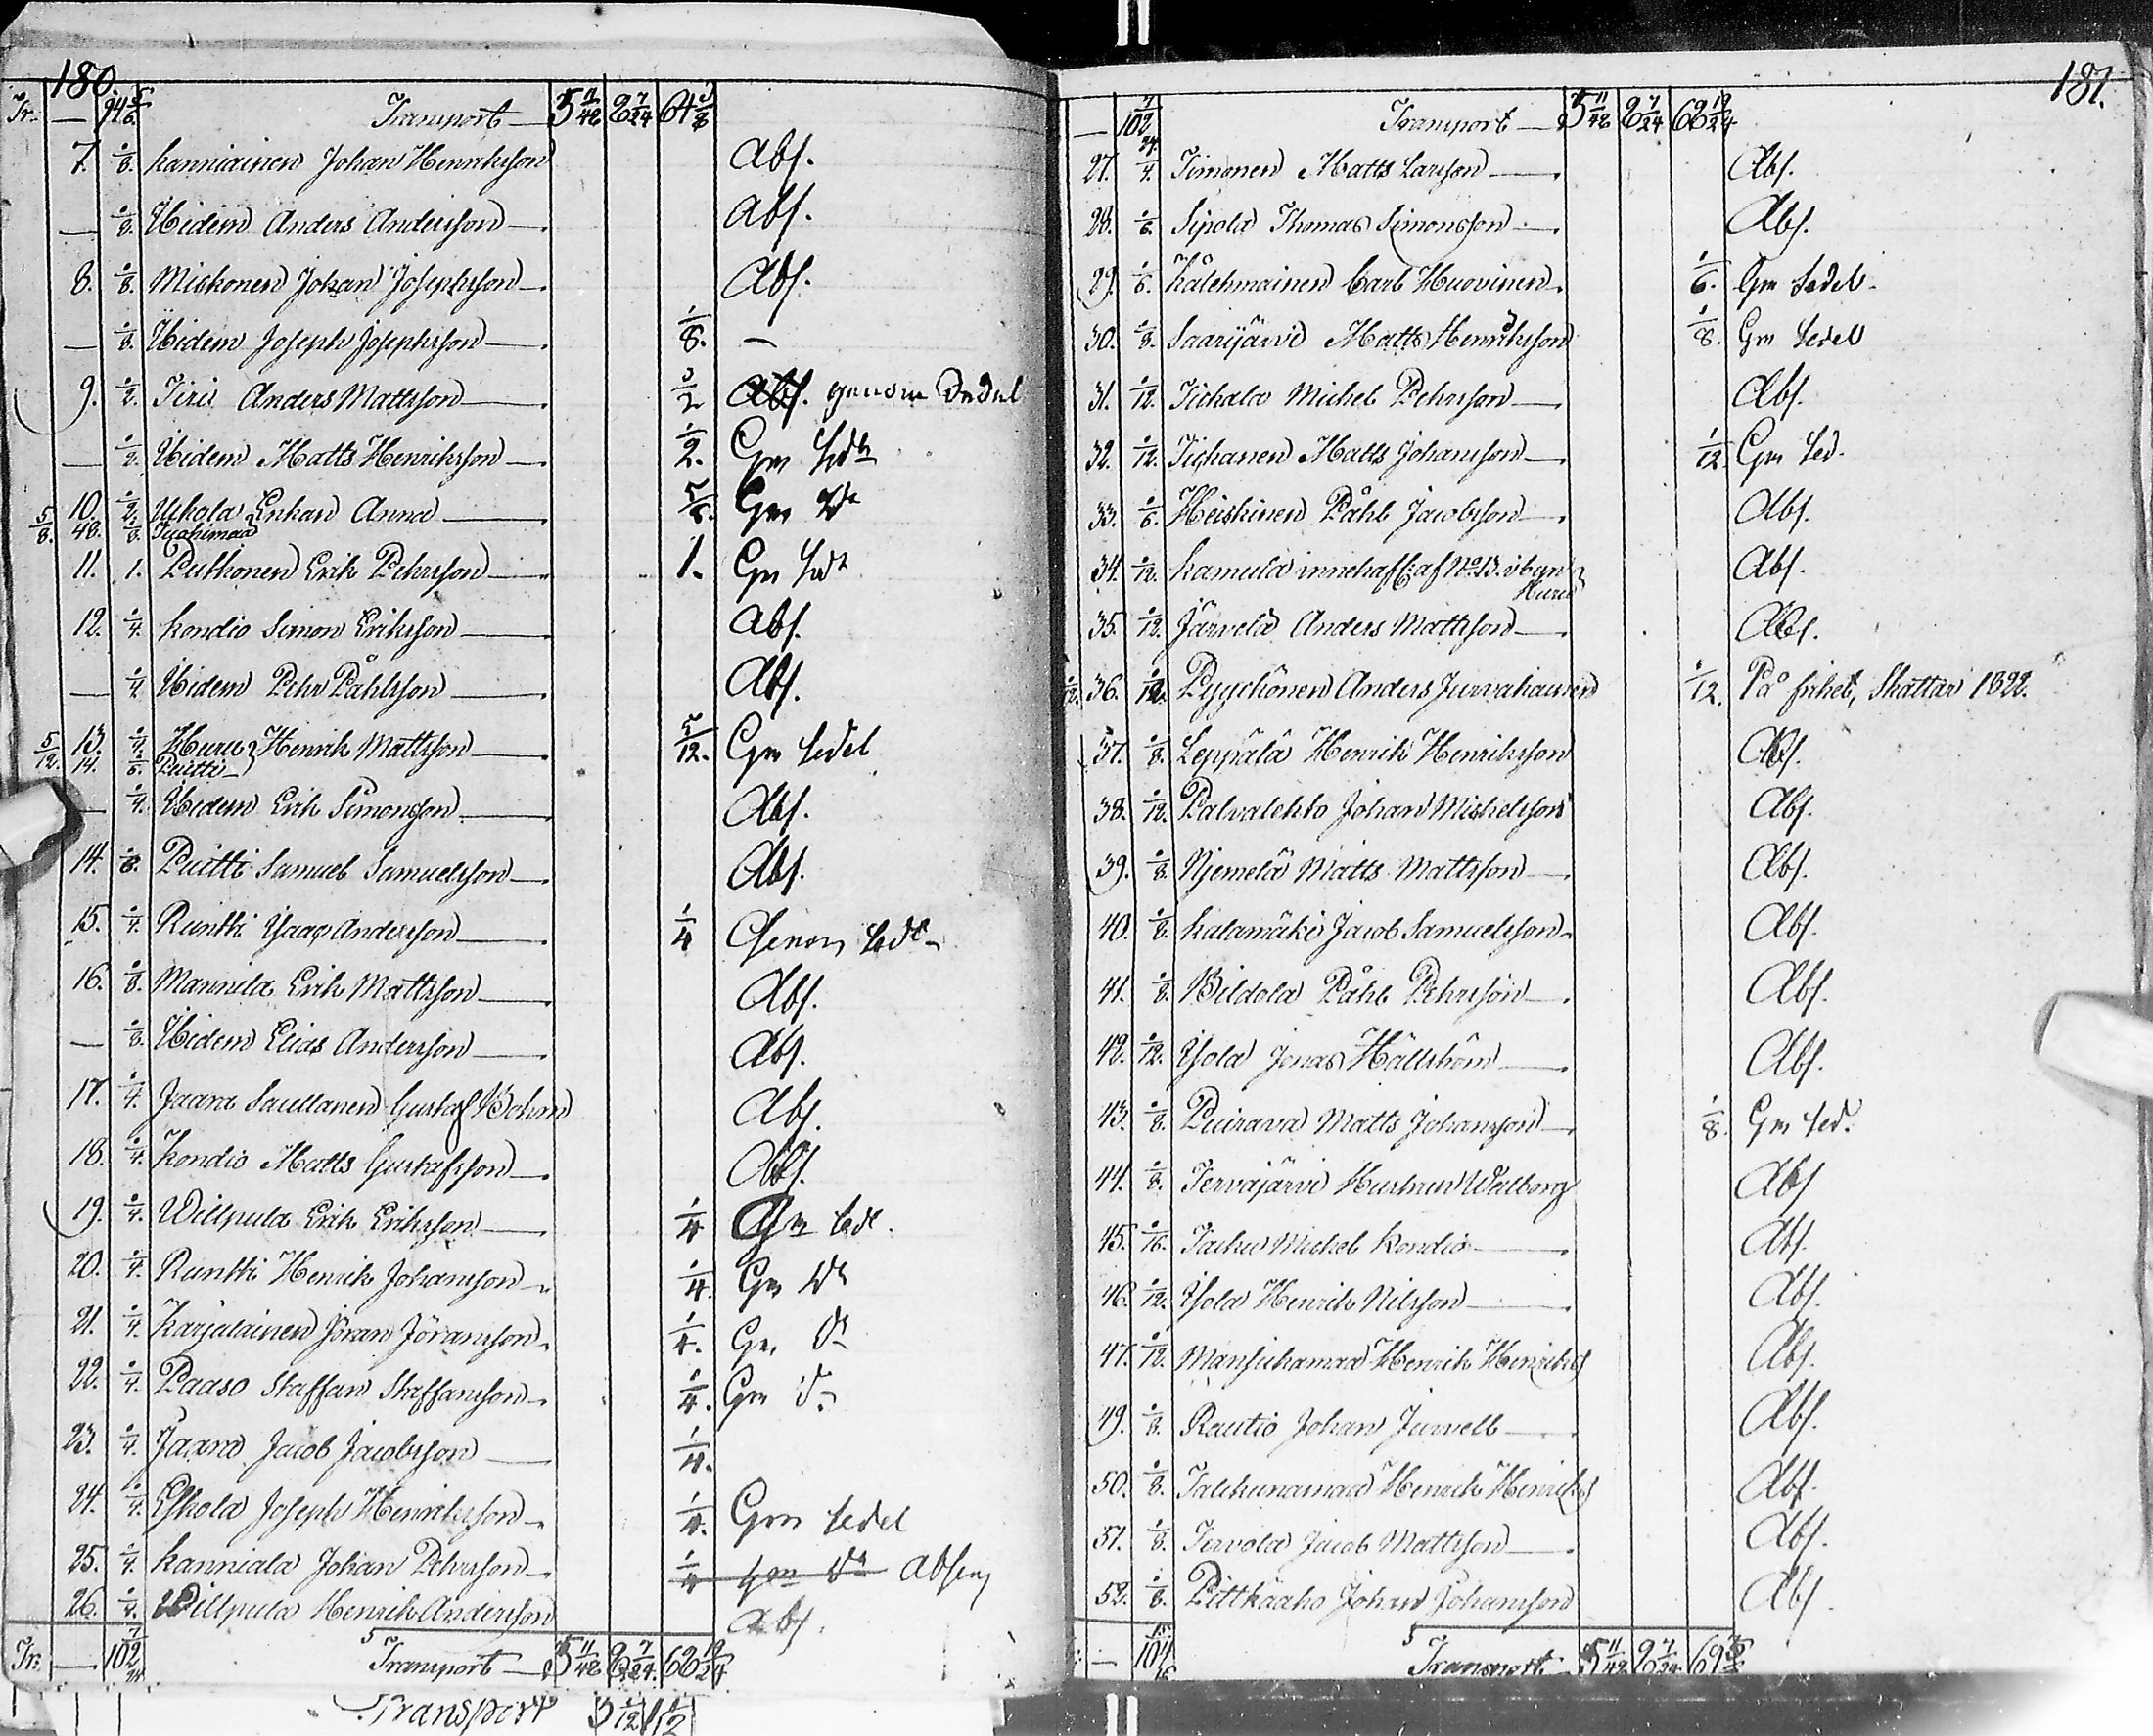 180.
Tr. — 94 5/6. Transport — 5 11/48 2 7/24 64 5/8
7. 1/8. Kanniainen Johan Henriksson Abs.
— 1/8. Ibidem Anders Andersson — Abs.
8. 1/8. Miskonen Johan Josephsson — Abs.
— 1/8. Ibidem Joseph Josephsson — 1/8. —
9. 1/2. Tiri Anders Mattsson — 1/2 genom Sedel
— 1/2. Ibidem Matts Henriksson — 1/2. Gm
5/8. 10. 1/2. Ukola Enkan Anna — 5/8. Gm
48. 1/8. Tuohimaa
11. 1. Pulkonen Erik Pehrsson — 1. Gm
12. 1/4. Kondio Simon Eriksson — Abs.
— 1/4. Ibidem Pehr Påhlsson — Abs.
5/12. 13. 1/4. Huru Henrik Mattsson — 5/12. Gm Sedel
14. 1/6. Puitti
— 1/4. Ibidem Erik Simonsson — Abs.
14. 1/8. Puitti Samuel Samuelsson — Abs.
15. 1/4. Runtti Isaac Andersson — 1/4 Genom
16. 1/8. Mannila Erik Mattsson — Abs.
— 1/8. Ibidem Elias Andersson — Abs.
17. 1/4. Jaara Saullanen Gustaf Bohm Abs.
18. 1/4. Kondio Matts Gustafsson — Abs.
19. 1/4. Willpula Erik Eriksson — 1/4 Gm Sedl.
20. 1/4. Runtti Henrik Johansson — 1/4. Gm
21. 1/4. Karjalainen Jöran Jöransson — 1/4. Gm
22. 1/4. Paaso Staffan Staffansson — 1/4. Gm
23. 1/4. Jaara Jacob Jacobsson — 1/4.
24. 1/4. Eskola Joseph Henriksson — 1/4. Gm Sedel
25. 1/4. Kanniala Johan Pehrsson — 1/4 Gm Absens
26. 1/4. Willpula Henrik Andersson Abs.
Tr. — 102 7/24 Transport — 5 11/48 2 7/24 66 19/24
Transport
181.
— 102 7/24. Transport — 5 11/48 2 7/24 66 19/24
27. 1/4. Timonen Matts Larsson — Abs.
28. 1/6. Sipola Thomas Simonsson — Abs.
29. 1/6. Kälehmainen Carl Huovinen — 1/6. Gm Sedel
30. 1/8. Saarijärvi Matts Henriksson 1/8. Gm Sedel
31. 1/12. Tichala Michel Pehrsson — Abs.
32. 1/12. Tichanen Matts Johansson — 1/12 Gm Sed.
33. 1/6. Heiskinen Påhl Jacobsson — Abs.
34. 1/12. Kamula innehaff: af No 13. i byn Abs.
Huru
35. 1/12. Järvelä Anders Mattsson — Abs.
1/12. 36. 1/12. Pyyckönen Anders Jurvahainen 1/12. På frihet, Skattar 1822.
37. 1/8. Leppälä Henrik Henriksson Abs.
38. 1/12. Palvalehto Johan Michelsson Abs.
39. 1/8. Njemelä Matts Mattsson — Abs.
40. 1/8. Kalamäki Jacob Samuelsson — Abs.
41. 1/8. Bildola Påhl Pehrsson — Abs.
42. 1/12. Isola Jonas Hällström — Abs.
43. 1/8. Puirava Matts Johansson — 1/8. Gm Sed.
44. 1/8. Tervajärvi Hustrun Walborg Abs
45. 1/16. Tachu Michel Kondio — Abs.
46. 1/12. Isola Henrik Nilsson — Abs.
47. 1/12. Mansichamaa Henrik Henriks Abs.
49. 1/8. Rautio Johan Jurvell — Abs.
50. 1/8. Talchunamaa Henrik Henriks Abs.
51. 1/8. Tervola Jacob Mattsson — Abs.
52. 1/8. Pittkäaho Johan Johansson Abs
— 104 Transport — 5 11/48 2 7/24 69